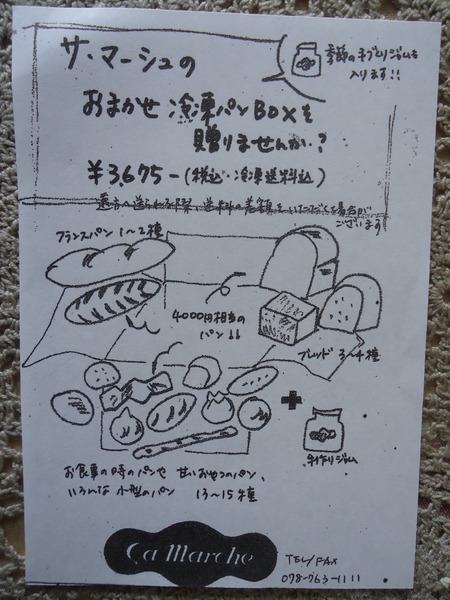 サ・マーシュの
季節の手づくりジャムも
入ります!!
おまかせ 冷凍パンBOXを
贈りませんか?
¥3,675-(税込・冷凍送料込)
遠方へ送られる際、送料の差額をいただく場合が
ございます
フランスパン 1〜2種
4000円相当の
パン↓↓
ブレッド 3〜4種
+
手作りジャム
お食事の時のパンや 甘いおやつのパン、
いろんな 小型のパン 13〜15種
Ça Marche
TEL/FAX
078-763-1111